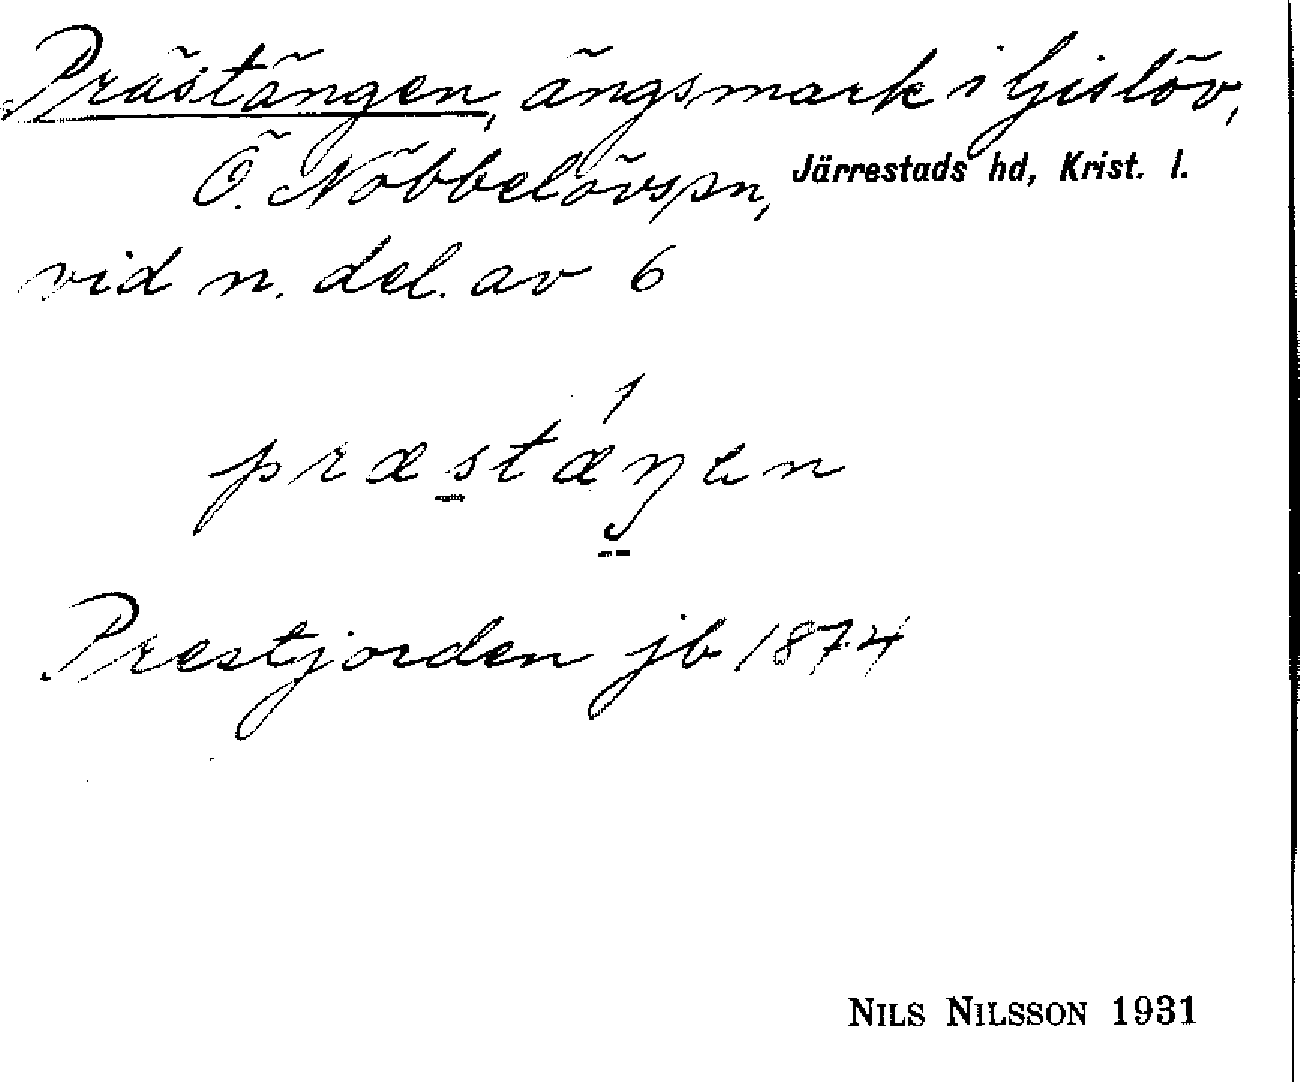 Prästängen, ängsmark i Gislöv,
Ö. Nöbbelövs sn, Järrestads hd, Krist. l.
vid n. del. av 6
præstæŋen
Prestjorden jb 1874
NILS NILSSON 1931